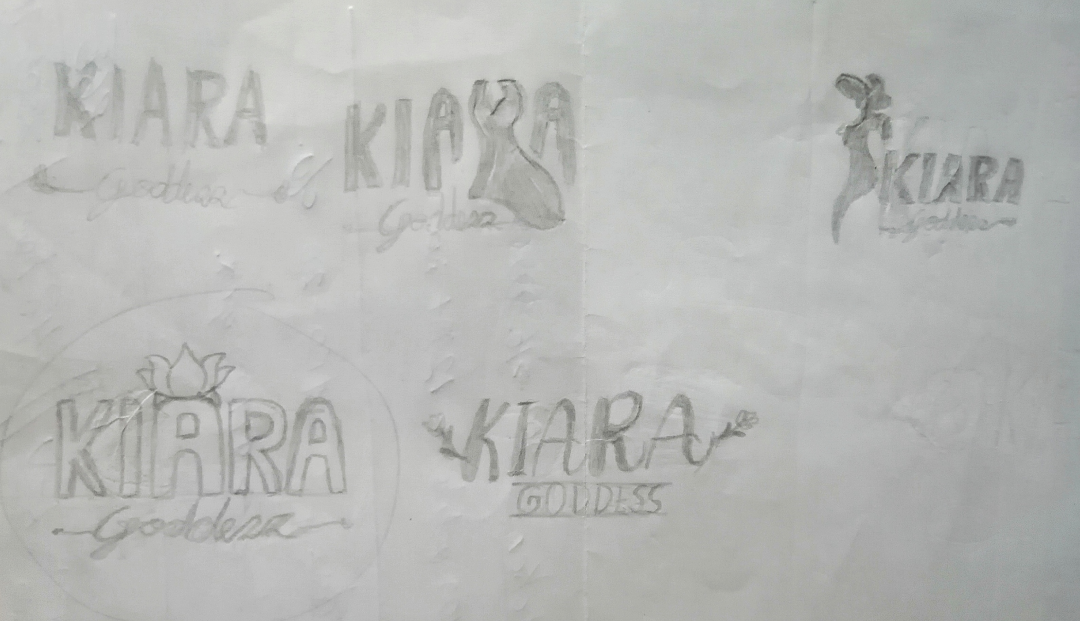 KIARA
Goddess
KIARA
Goddess
KIARA
Goddess
KIARA
Goddess
KIARA
GODDESS